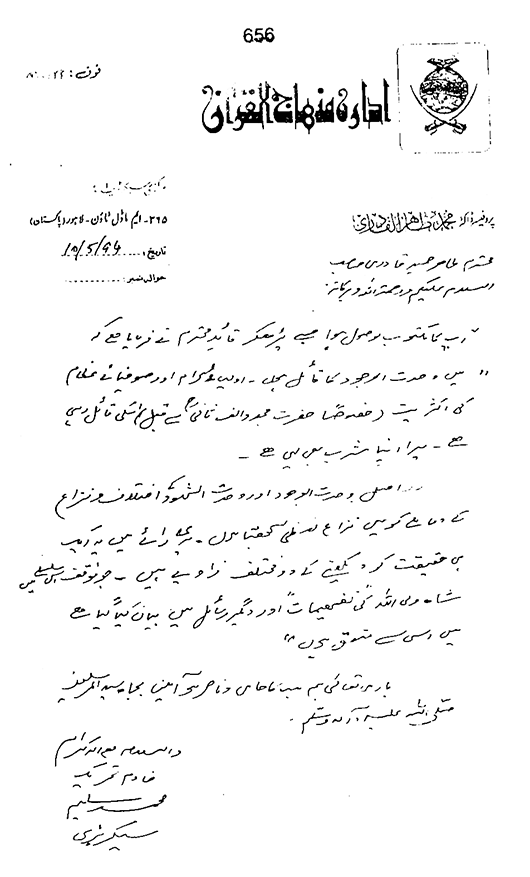 656
ادارہ منہاج القرآن
فون:
۳۶۵- ایم ماڈل ٹاؤن- لاہور (پاکستان)
تاریخ: 10/5/94
حوالہ نمبر:
پروفیسر ڈاکٹر محمد طاہر القادری
محترم طاہر حسین قادری صاحب
السلام علیکم ورحمۃ اللہ وبرکاتہ
آپ کا مکتوب موصول ہوا جسے پڑھکر قائد محترم نے فرمایا ہے کہ
" میں وحدت الوجود کا قائل ہوں - اولیاء کرام اور صوفیائے عظام
کی اکثریت (خصوصاً حضرت مجدد الف ثانیؒ سے قبل) اسکی قائل رہی
ہے - میرا اپنا مشرب بھی یہی ہے -
دراصل وحدت الوجود اور وحدت الشہود کے اختلاف و نزاع
کے معاملے کو میں نزاع لفظی سمجھتا ہوں - میری رائے میں یہ ایک
ہی حقیقت کو دیکھنے کے دو مختلف زاویے ہیں - جو موقف اس سلسلے میں
شاہ ولی اللہؒ کی تفہیمات اور دیگر رسائل میں بیان کیا گیا ہے
میں اسی سے متفق ہوں "
باری تعالیٰ ہم سب کا حامی و ناصر ہو آمین بجاہ سید المرسلین
صلی اللہ علیہ وآلہ وسلم -
والسلام مع الاکرام
خادم تحریک
محمد سلیم
سیکرٹری